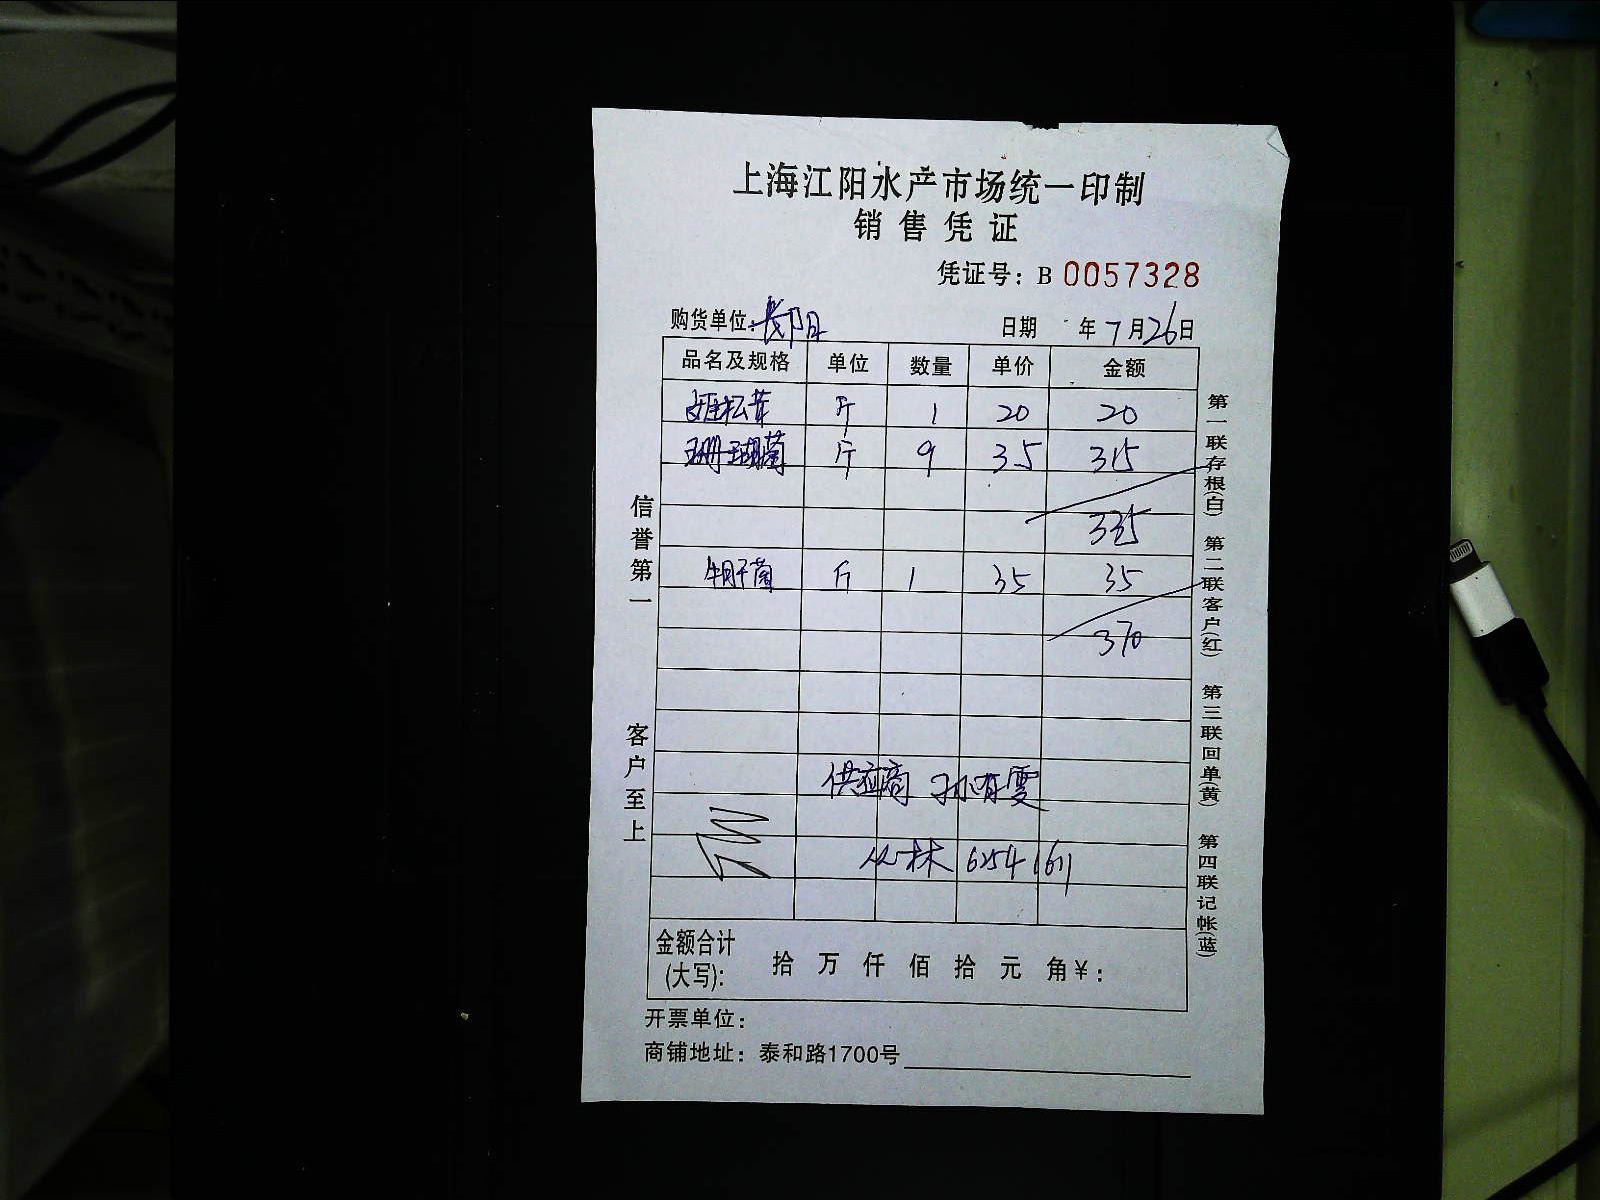 上海江阳水产市场统一印制
销售凭证
凭证号：B 0057328
购货单位：长阳 日期 年 7 月 26 日
品名及规格 单位 数量 单价 金额
姬松茸 斤 1 20 20
珊瑚菌 斤 9 35 315
335
牛肝菌 斤 1 35 35
370
供应商 孙有雯
丛林 62541611
金额合计
(大写)： 拾 万 仟 佰 拾 元 角 ¥：
开票单位：
商铺地址：泰和路1700号
信誉第一
客户至上
第一联存根(白) 第二联客户(红) 第三联回单(黄) 第四联记帐(蓝)